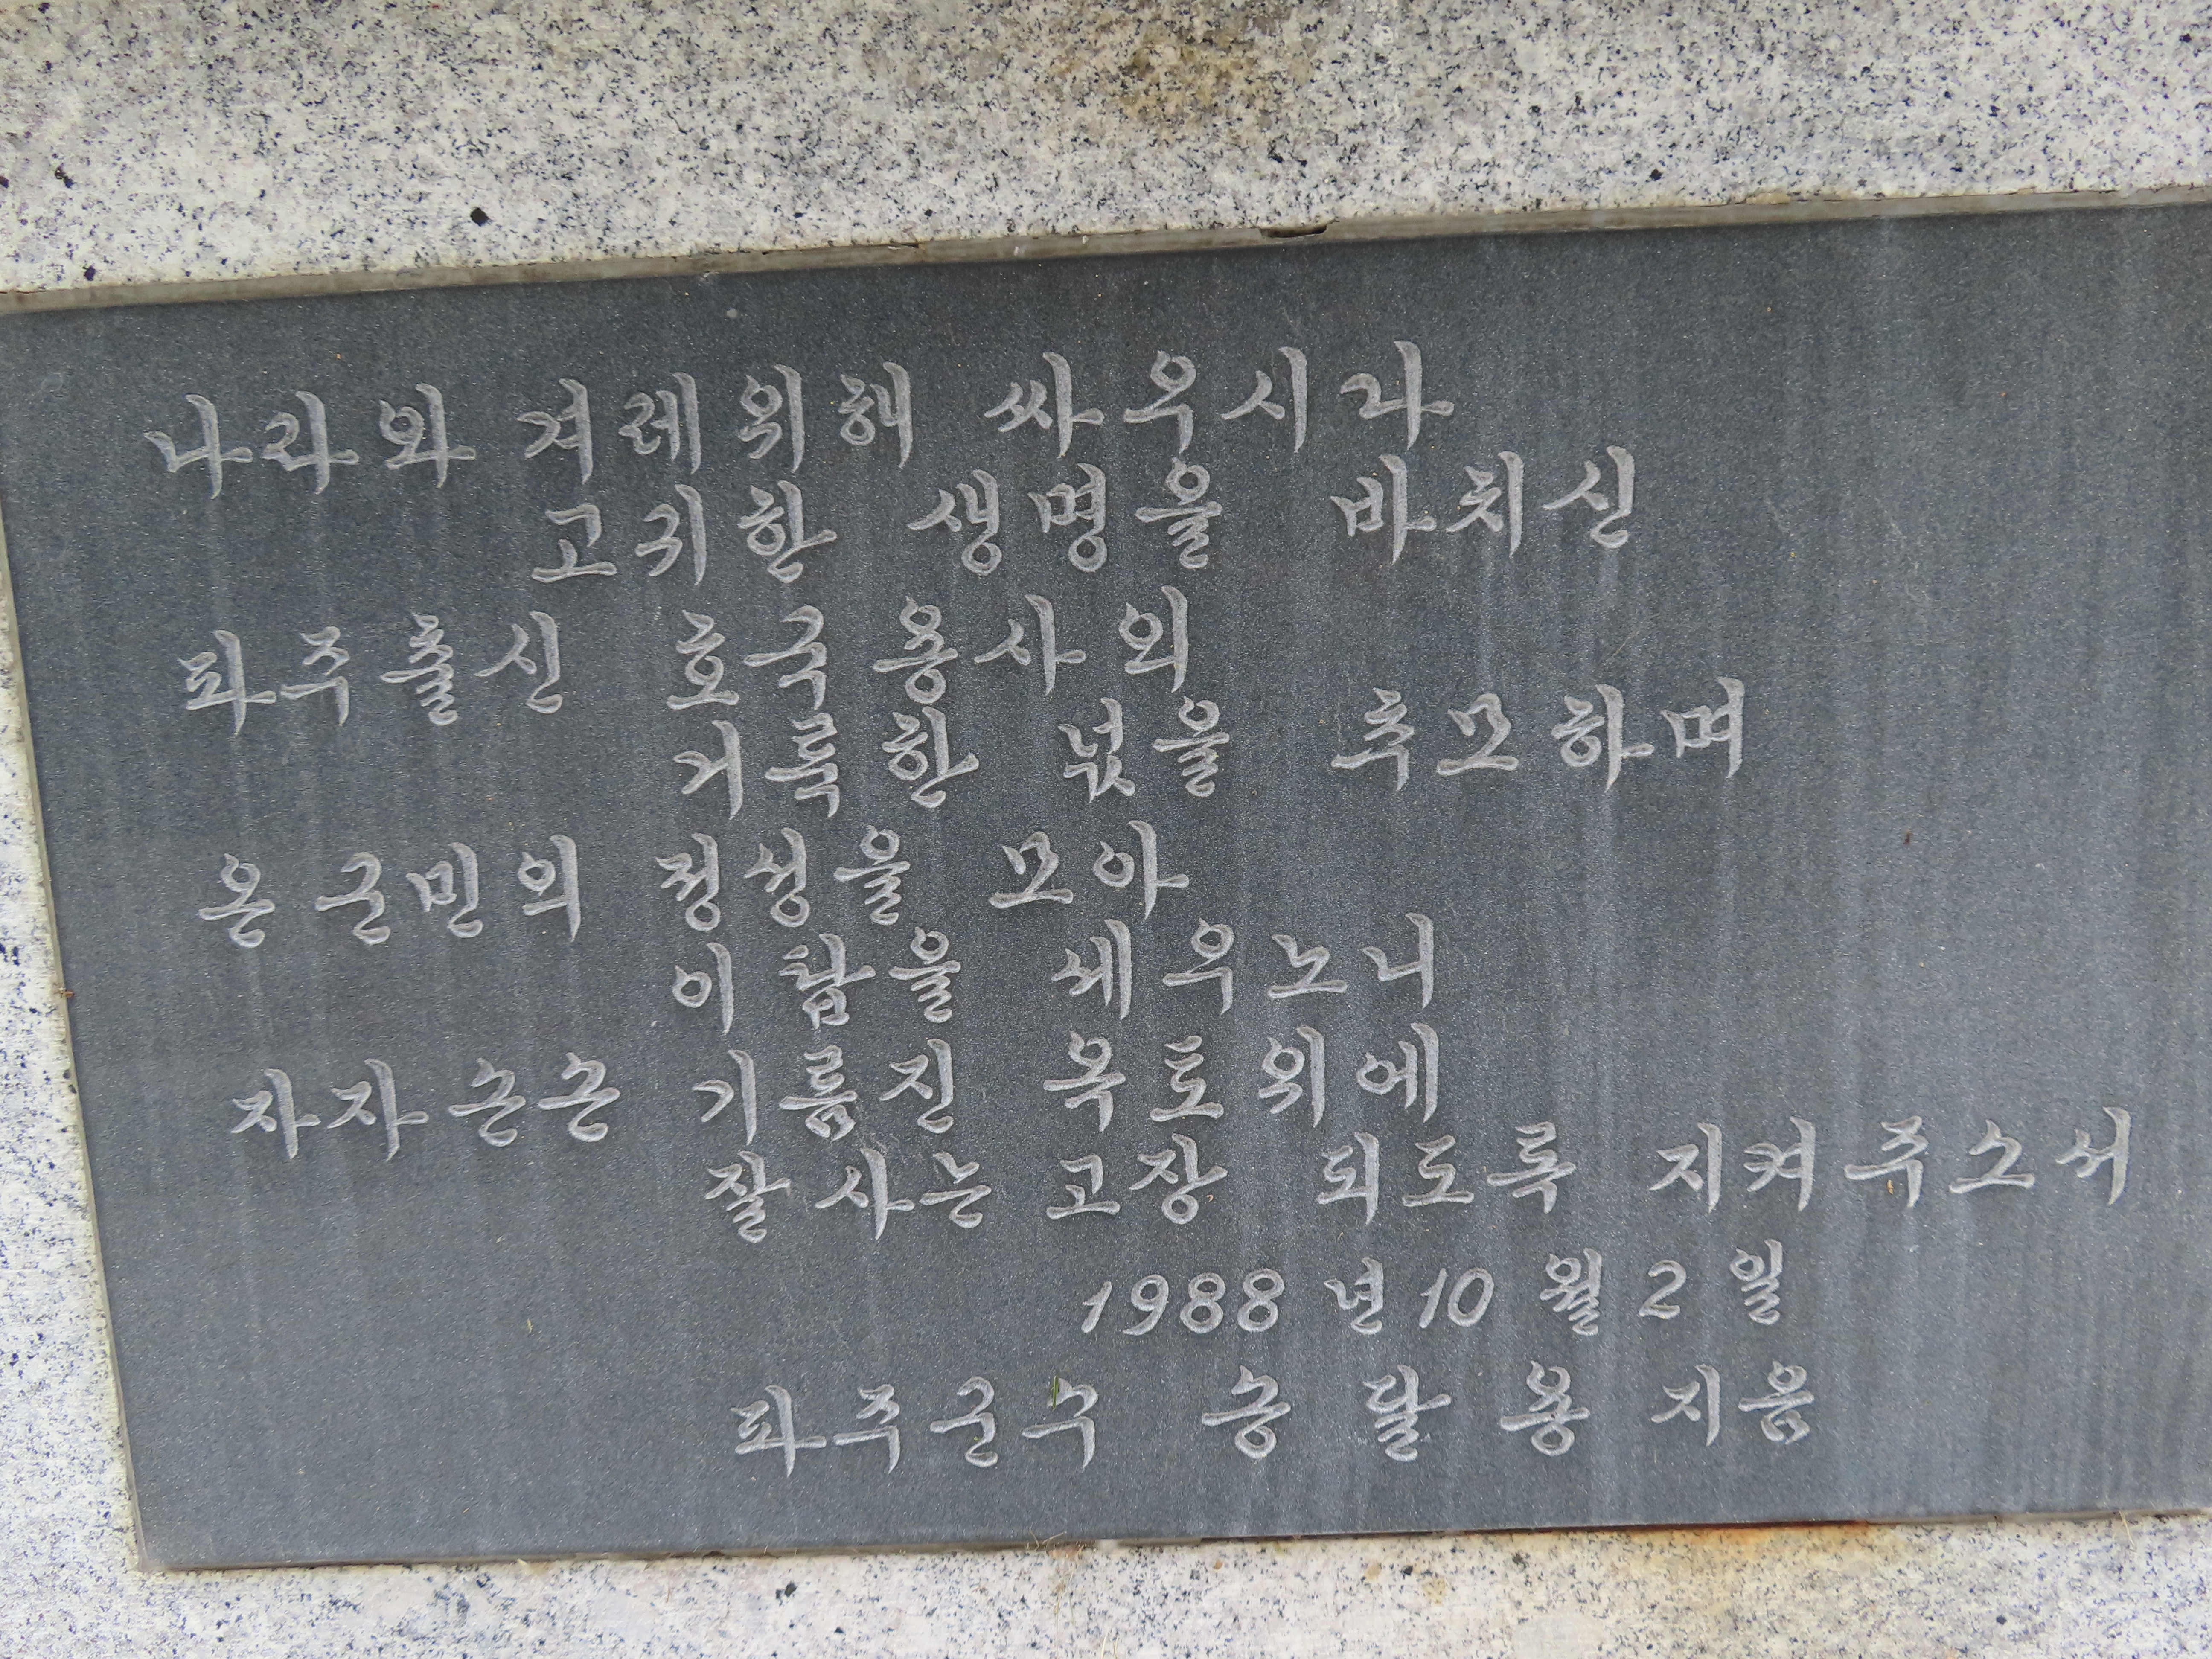 나라와 겨레위해 싸우시다
고귀한 생명을 바치신
파주출신 호국용사의
거룩한 넋을 추모하며
온 군민의 정성을 모아
이 탑을 세우노니
자자손손 기름진 옥토위에
잘 사는 고장 되도록 지켜주소서
1988년 10월 2일
파주군수 송달용 지음